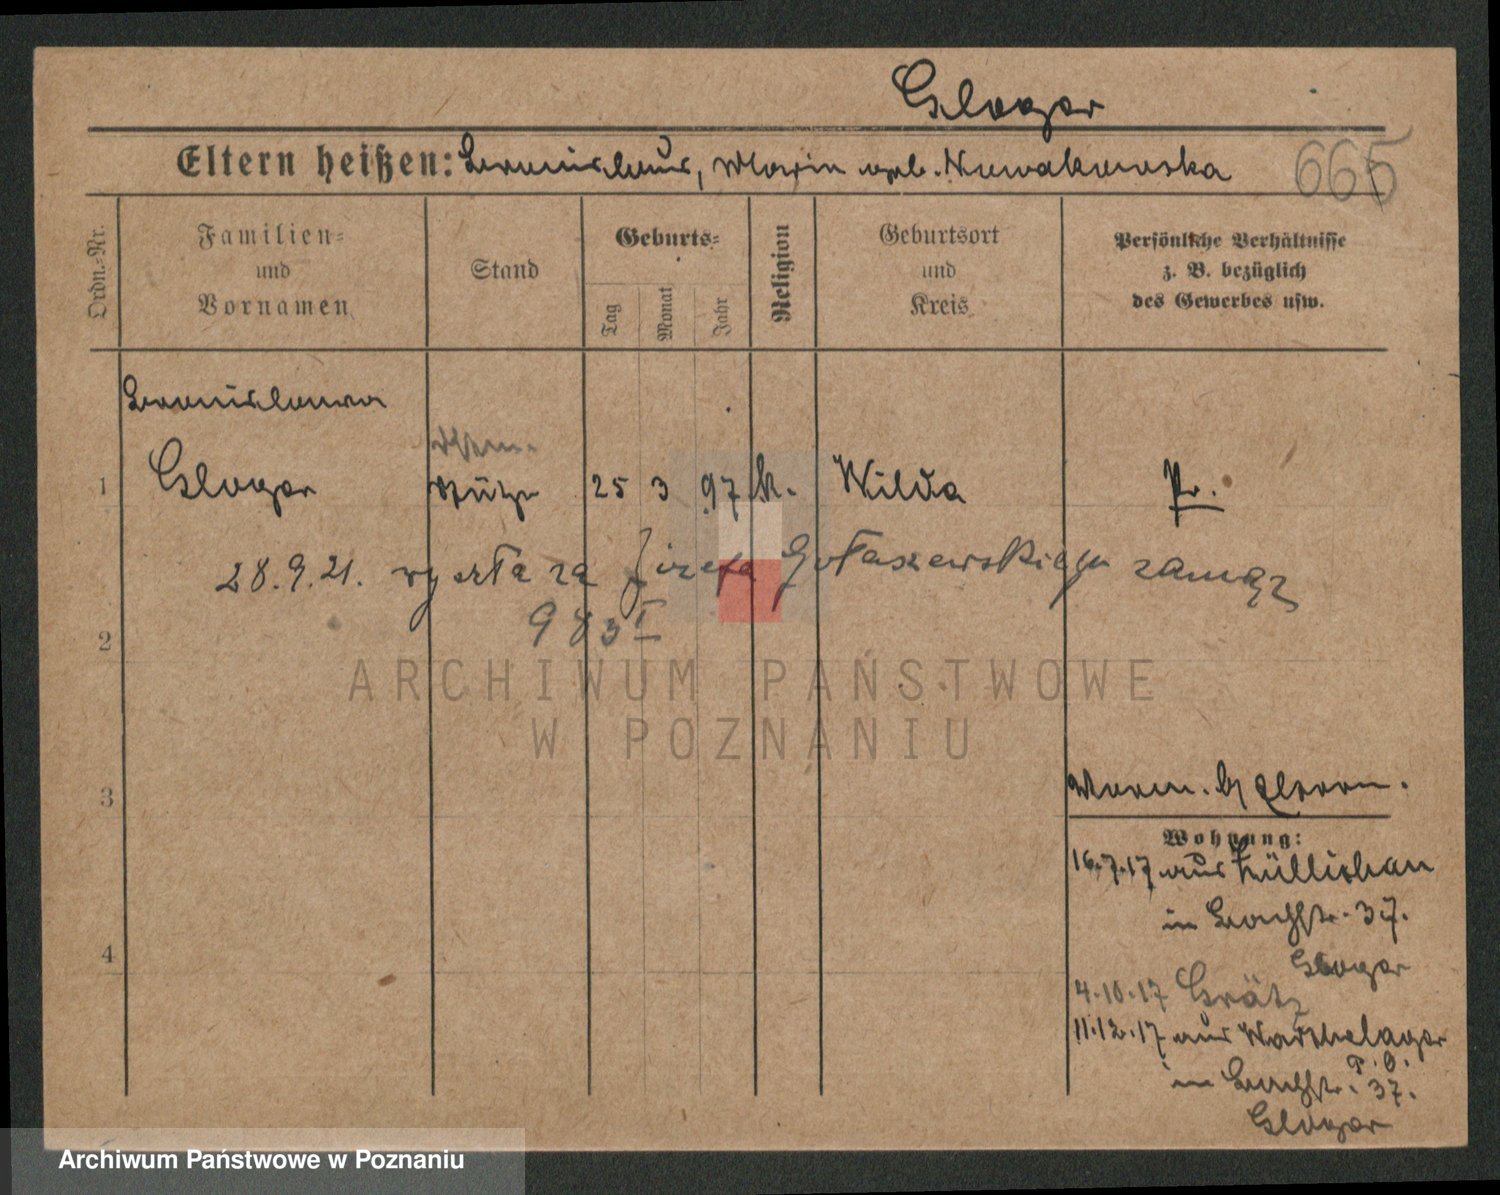 Glogar
Eltern heißen: Bronislaus, Maria geb. Nowakowska
665
Ordn.-Nr.
Familien-
und
Vornamen
Stand
Geburts-
Tag
Monat
Jahr
Religion
Geburtsort
und
Kreis
Persönliche Verhältnisse
z. B. bezüglich
des Gewerbes usw.
Bronislawa
1 Glogar Stütze 25 3 97 k. Wilda Pr.
28.9.21. wyszła za Józefa Gołaszewskiego zamąż
983 I
2
ARCHIWUM PAŃSTWOWE
W POZNANIU
3
Wohnung:
16.7.17 aus Züllichau
in Bachstr. 37.
Glogar
4
4.10.17 Grätz
11.12.17 aus Warthelager
P. O.
in Bachstr. 37.
Glogar
Archiwum Państwowe w Poznaniu